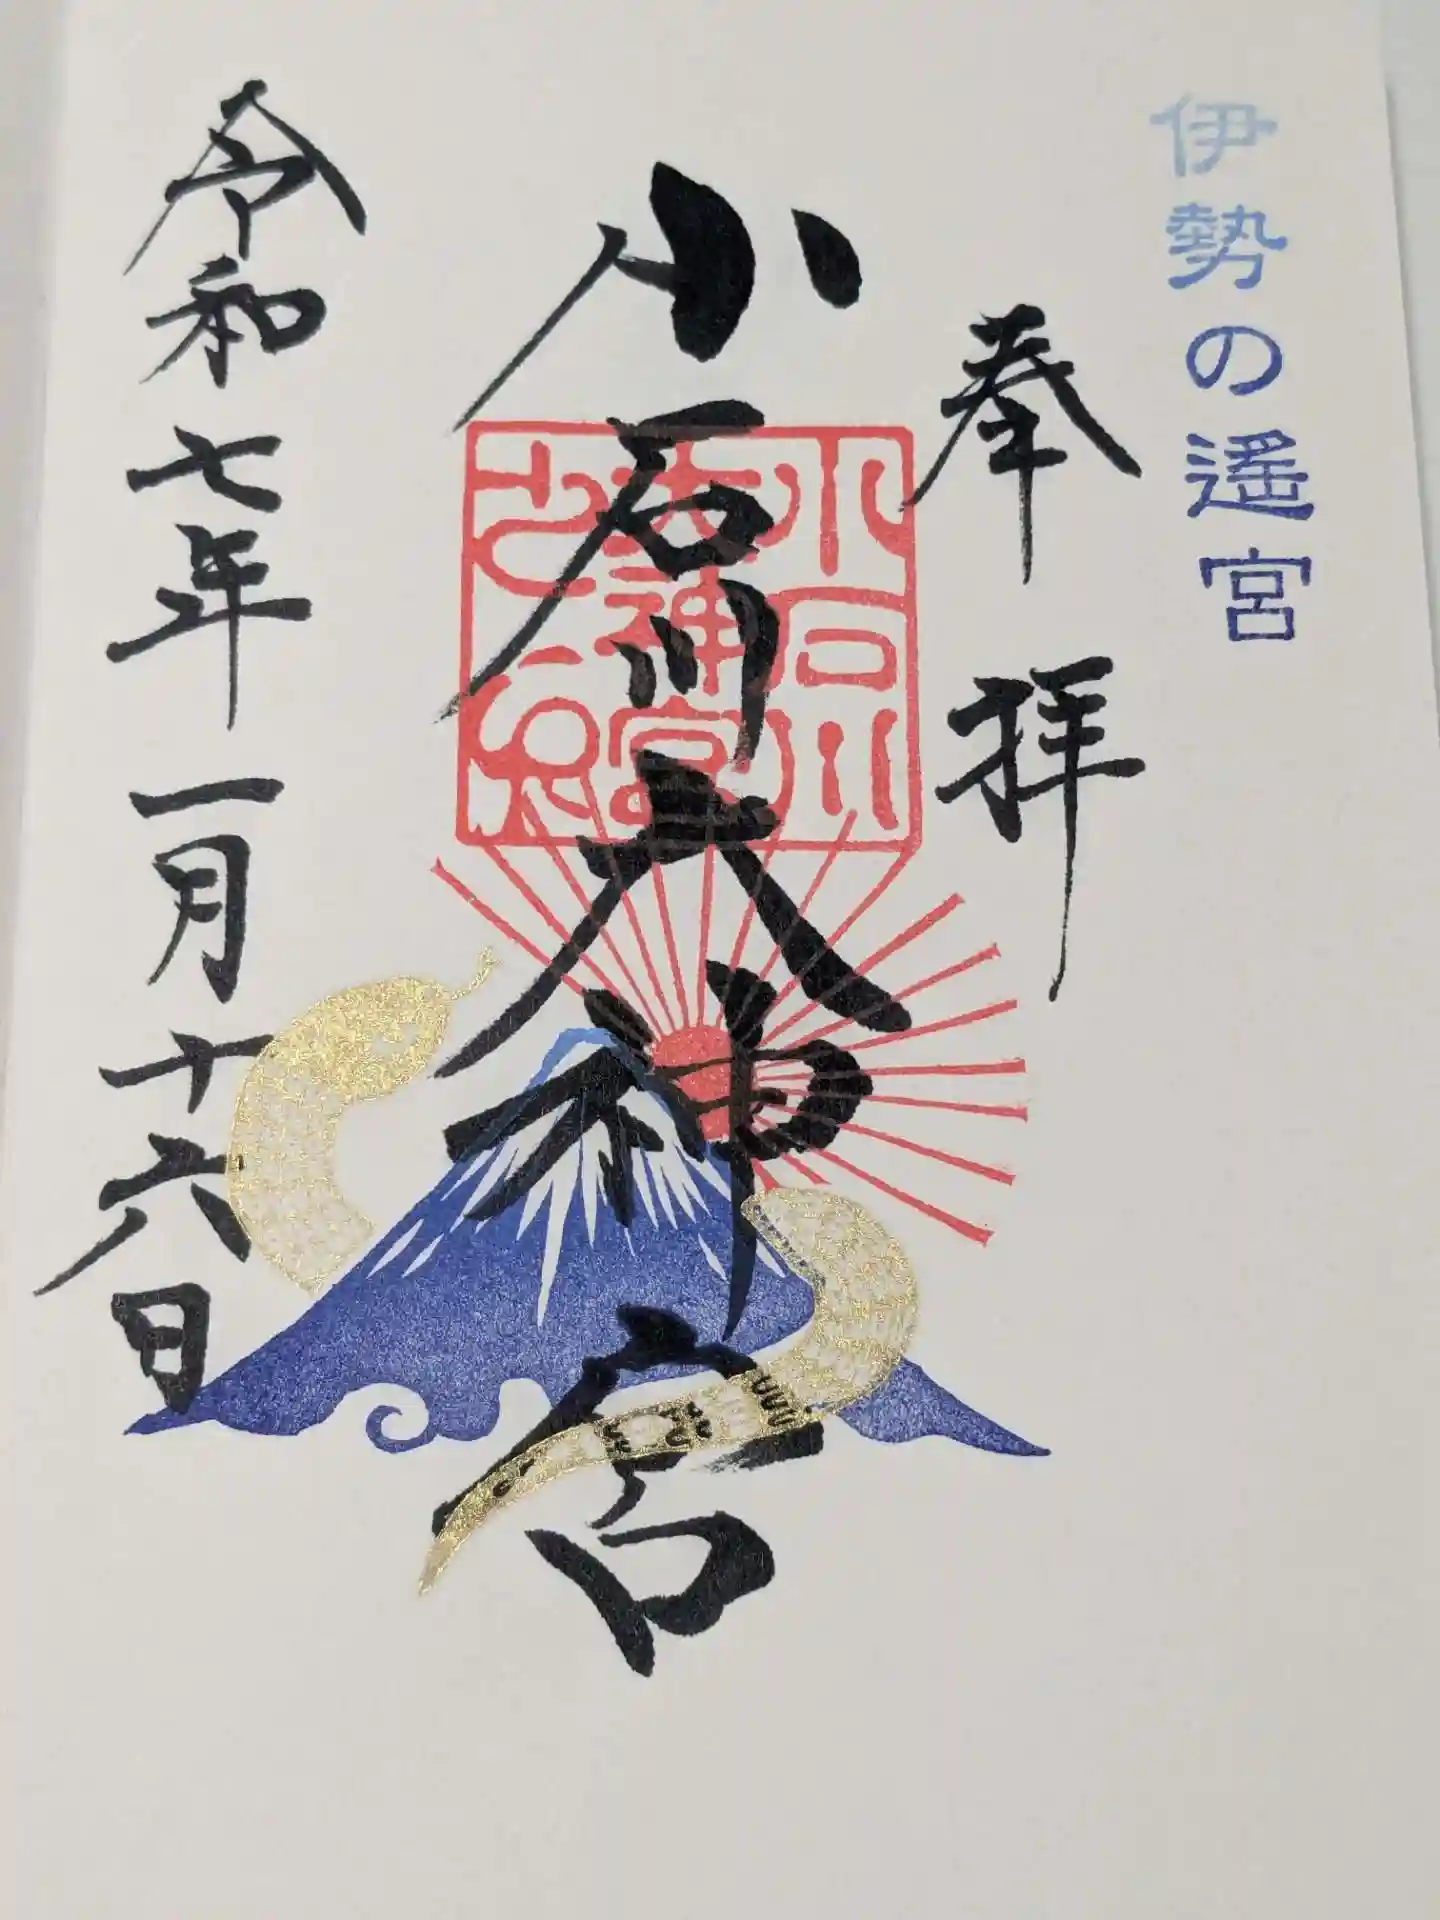 伊勢の遥宮
奉拝
小石川大神宮
小石川
大神宮
之印
令和七年一月十六日